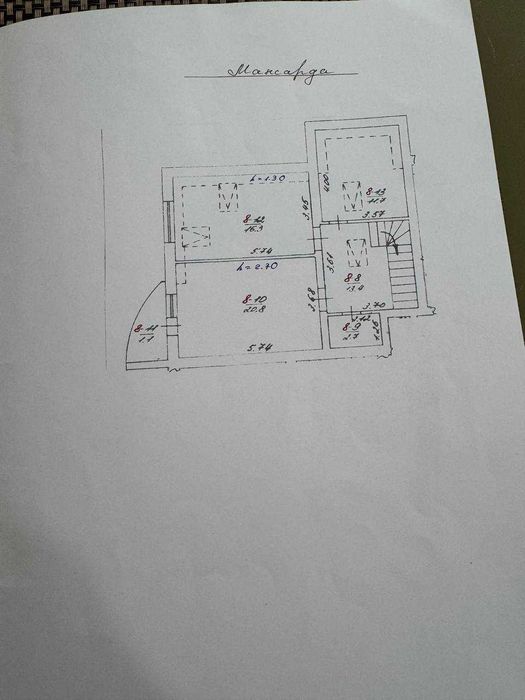 Мансарда
h=1.90
8-12
16.3
5.74
3.45
4.00
8-13
11.7
3.57
h=2.70
8-10
20.8
5.74
3.68
3.61
8-8
13.4
3.70
8-11
1.1
2.12
8-9
2.7
1.26